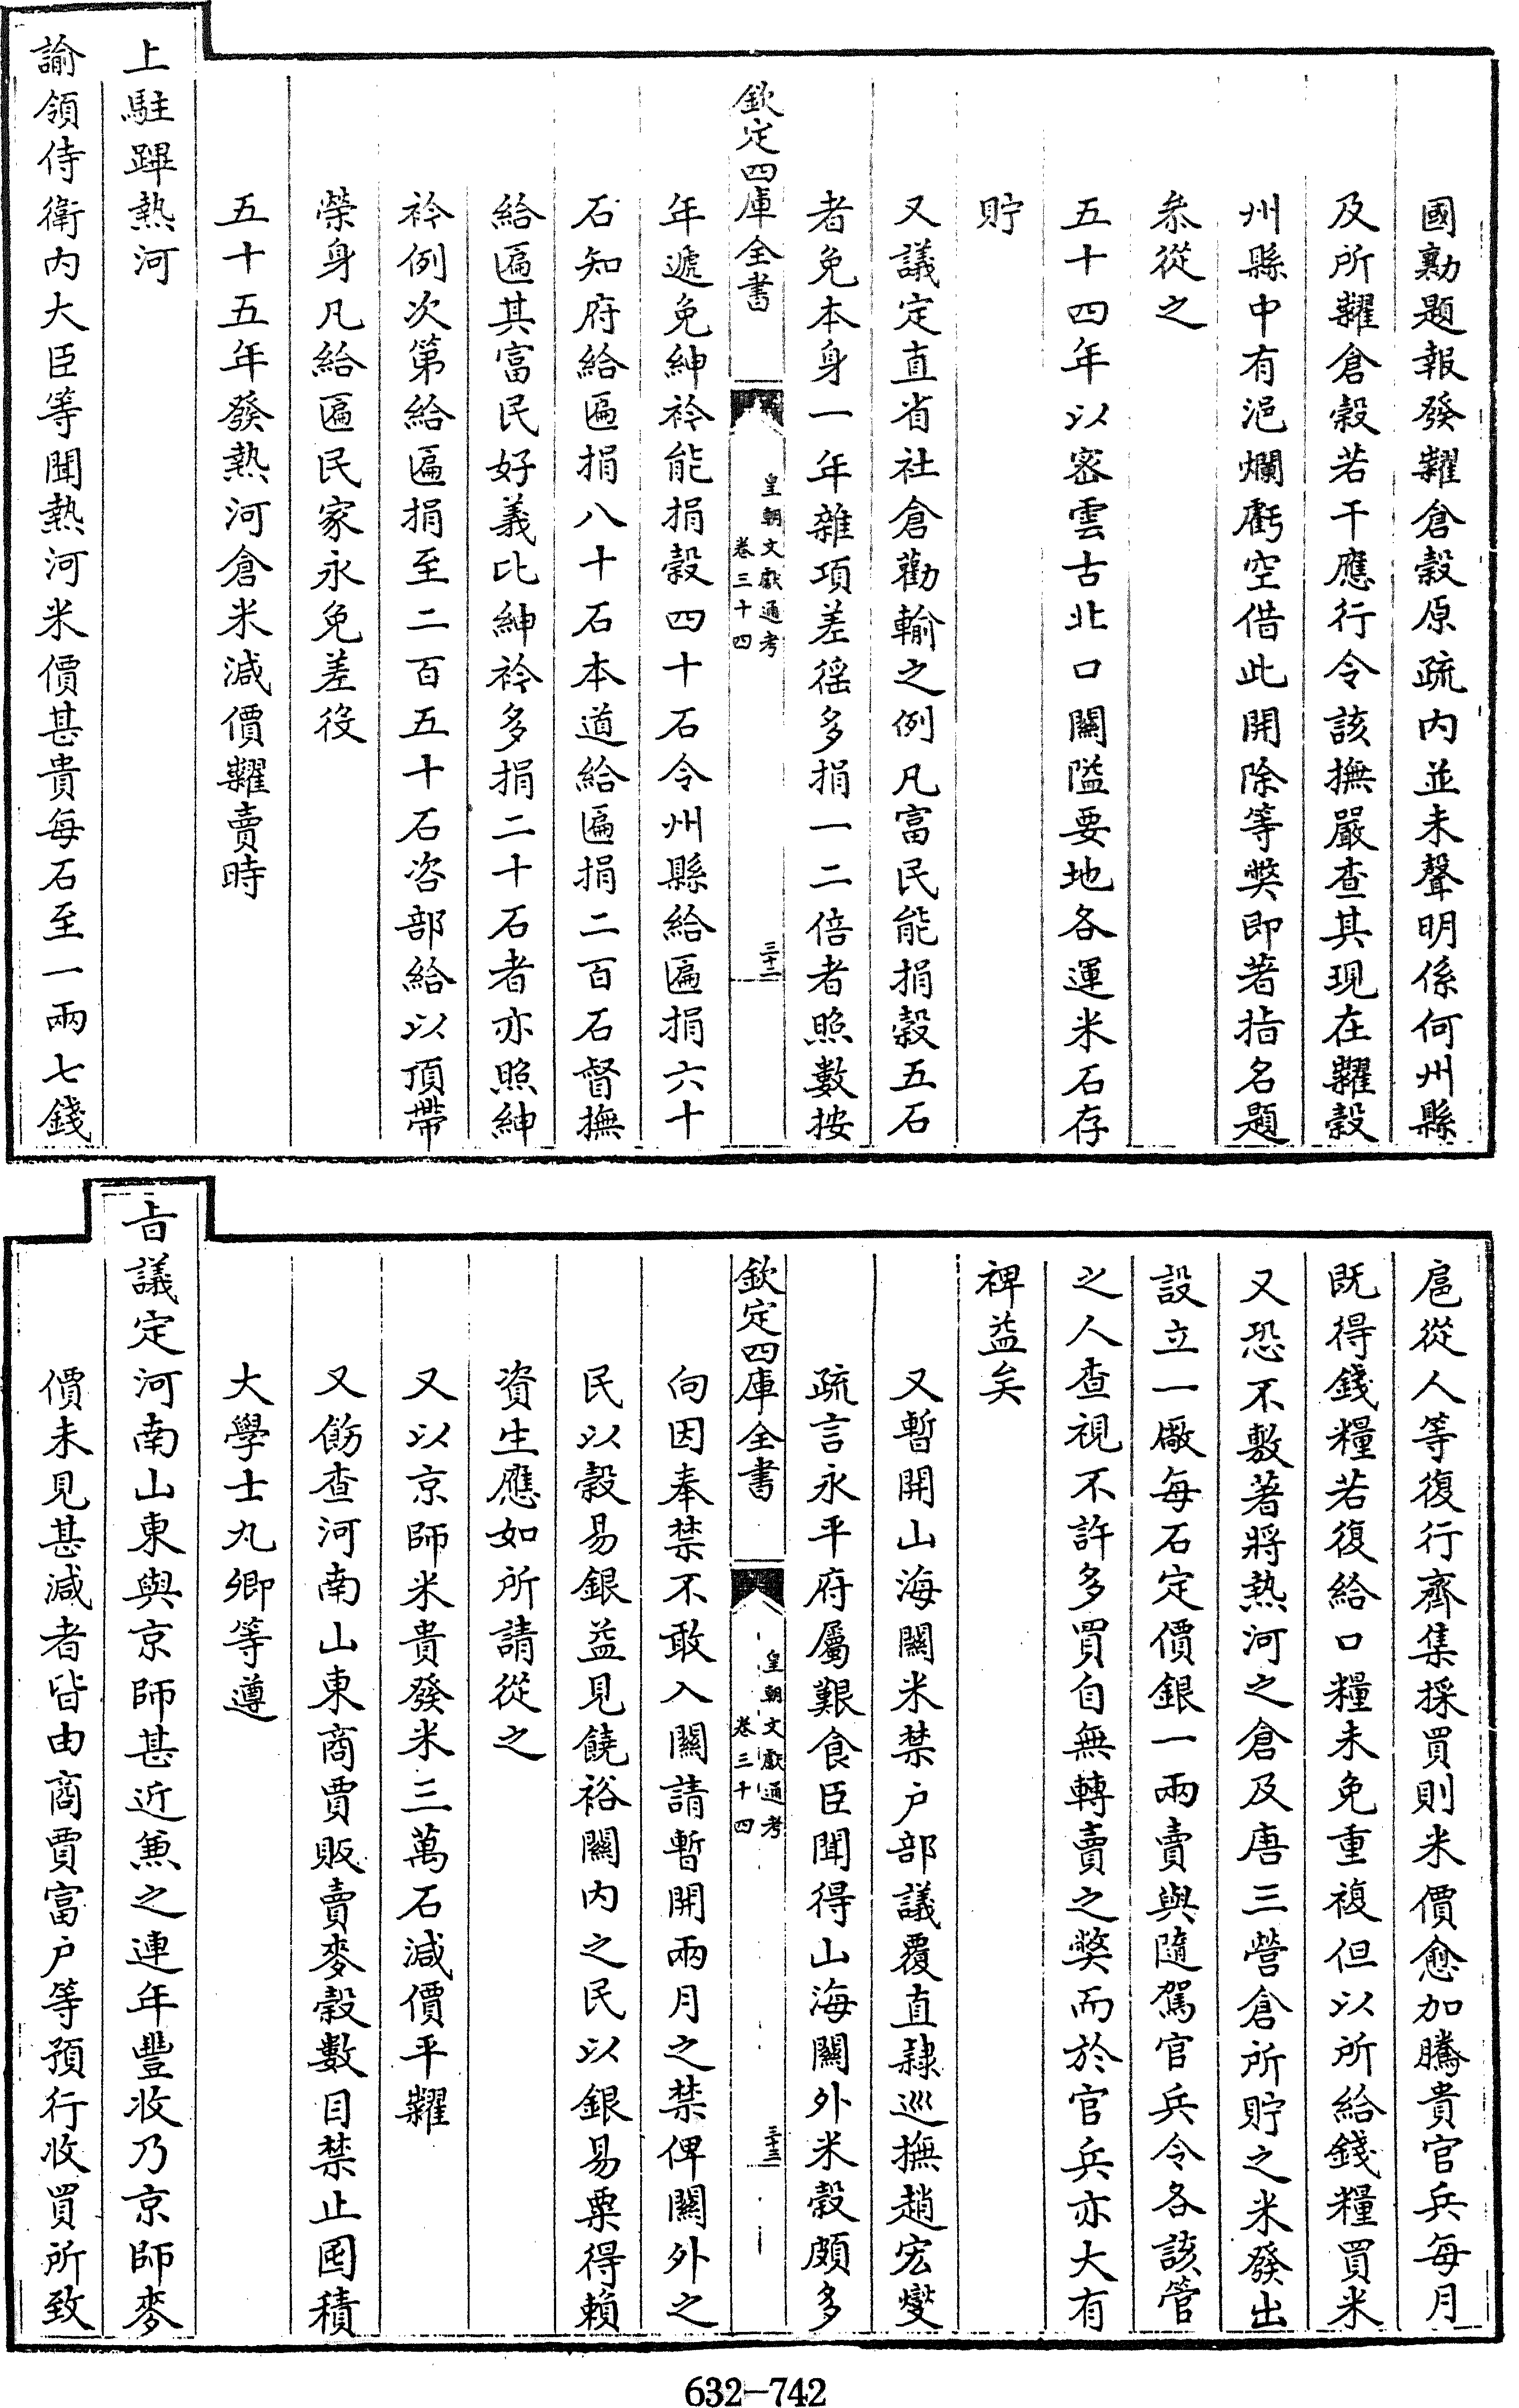 國勷題報發糶倉穀原疏内並未聲明係何州縣
及所糶倉穀若干應行令該撫嚴查其現在糶穀
州縣中有浥爛虧空借此開除等獘即著指名題
叅從之
五十四年以密雲古北口關隘要地各運米石存
貯
又議定直省社倉勸輸之例凡富民能捐穀五石
者免本身一年雜項差徭多捐一二倍者照數按
欽定四庫全書
皇朝文獻通考
卷三十四
三十二
年遞免紳衿能捐穀四十石令州縣給匾捐六十
石知府給匾捐八十石本道給匾捐二百石督撫
給匾其富民好義比紳衿多捐二十石者亦照紳
衿例次第給匾捐至二百五十石咨部給以頂帶
榮身凡給匾民家永免差役
五十五年發熱河倉米減價糶賣時
上駐蹕熱河
諭領侍衛内大臣等聞熱河米價甚貴每石至一兩七錢
扈從人等復行齊集採買則米價愈加騰貴官兵每月
既得錢糧若復給口糧未免重複但以所給錢糧買米
又恐不敷著將熱河之倉及唐三營倉所貯之米發出
設立一廠每石定價銀一兩賣與隨駕官兵令各該管
之人查視不許多買自無轉賣之獘而於官兵亦大有
裨益矣
又暫開山海關米禁户部議覆直隸巡撫趙宏燮
疏言永平府屬艱食臣聞得山海關外米穀頗多
欽定四庫全書
皇朝文獻通考
卷三十四
三十三
向因奉禁不敢入關請暫開兩月之禁俾關外之
民以穀易銀益見饒裕關内之民以銀易粟得賴
資生應如所請從之
又以京師米貴發米三萬石減價平糶
又飭查河南山東商賈販賣麥穀數目禁止囤積
大學士九卿等遵
旨議定河南山東與京師甚近兼之連年豐收乃京師麥
價未見甚減者皆由商賈富户等預行收買所致
632-742